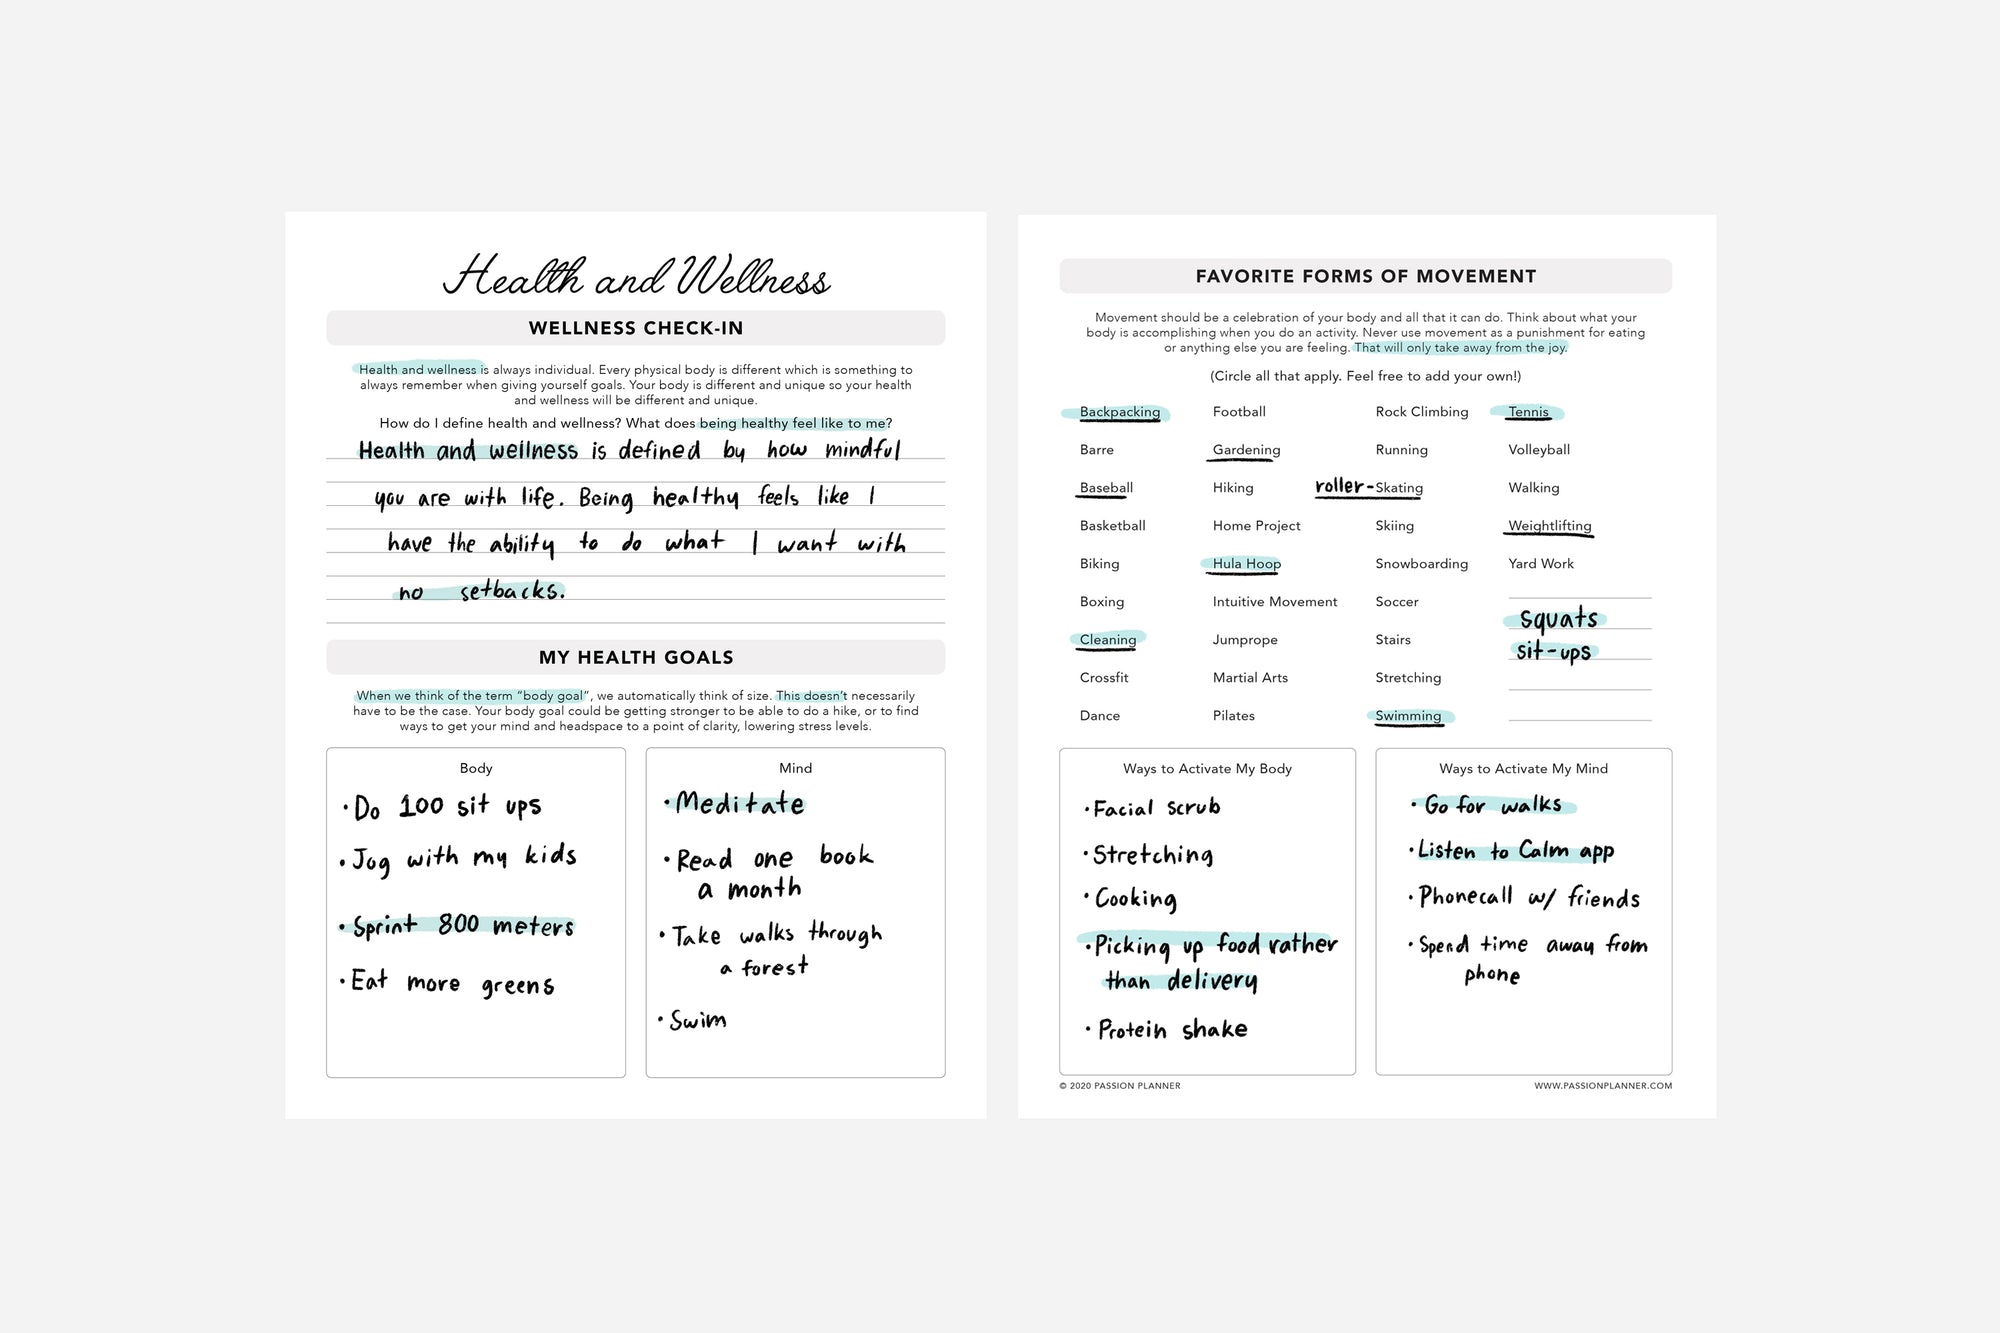 Health and Wellness
WELLNESS CHECK-IN
Health and wellness is always individual. Every physical body is different which is something to
always remember when giving yourself goals. Your body is different and unique so your health
and wellness will be different and unique.
How do I define health and wellness? What does being healthy feel like to me?
Health and wellness is defined by how mindful
you are with life. Being healthy feels like I
have the ability to do what I want with
no setbacks.
MY HEALTH GOALS
When we think of the term “body goal”, we automatically think of size. This doesn’t necessarily
have to be the case. Your body goal could be getting stronger to be able to do a hike, or to find
ways to get your mind and headspace to a point of clarity, lowering stress levels.
Body
• Do 100 sit ups
• Jog with my kids
• Sprint 800 meters
• Eat more greens
Mind
• Meditate
• Read one book
a month
• Take walks through
a forest
• Swim
FAVORITE FORMS OF MOVEMENT
Movement should be a celebration of your body and all that it can do. Think about what your
body is accomplishing when you do an activity. Never use movement as a punishment for eating
or anything else you are feeling. That will only take away from the joy.
(Circle all that apply. Feel free to add your own!)
Backpacking
Barre
Baseball
Basketball
Biking
Boxing
Cleaning
Crossfit
Dance
Football
Gardening
Hiking
Home Project
Hula Hoop
Intuitive Movement
Jumprope
Martial Arts
Pilates
Rock Climbing
Running
roller-Skating
Skiing
Snowboarding
Soccer
Stairs
Stretching
Swimming
Tennis
Volleyball
Walking
Weightlifting
Yard Work
squats
sit-ups
Ways to Activate My Body
• Facial scrub
• Stretching
• Cooking
• Picking up food rather
than delivery
• Protein shake
Ways to Activate My Mind
• Go for walks
• Listen to Calm app
• Phonecall w/ friends
• Spend time away from
phone
© 2020 PASSION PLANNER
WWW.PASSIONPLANNER.COM